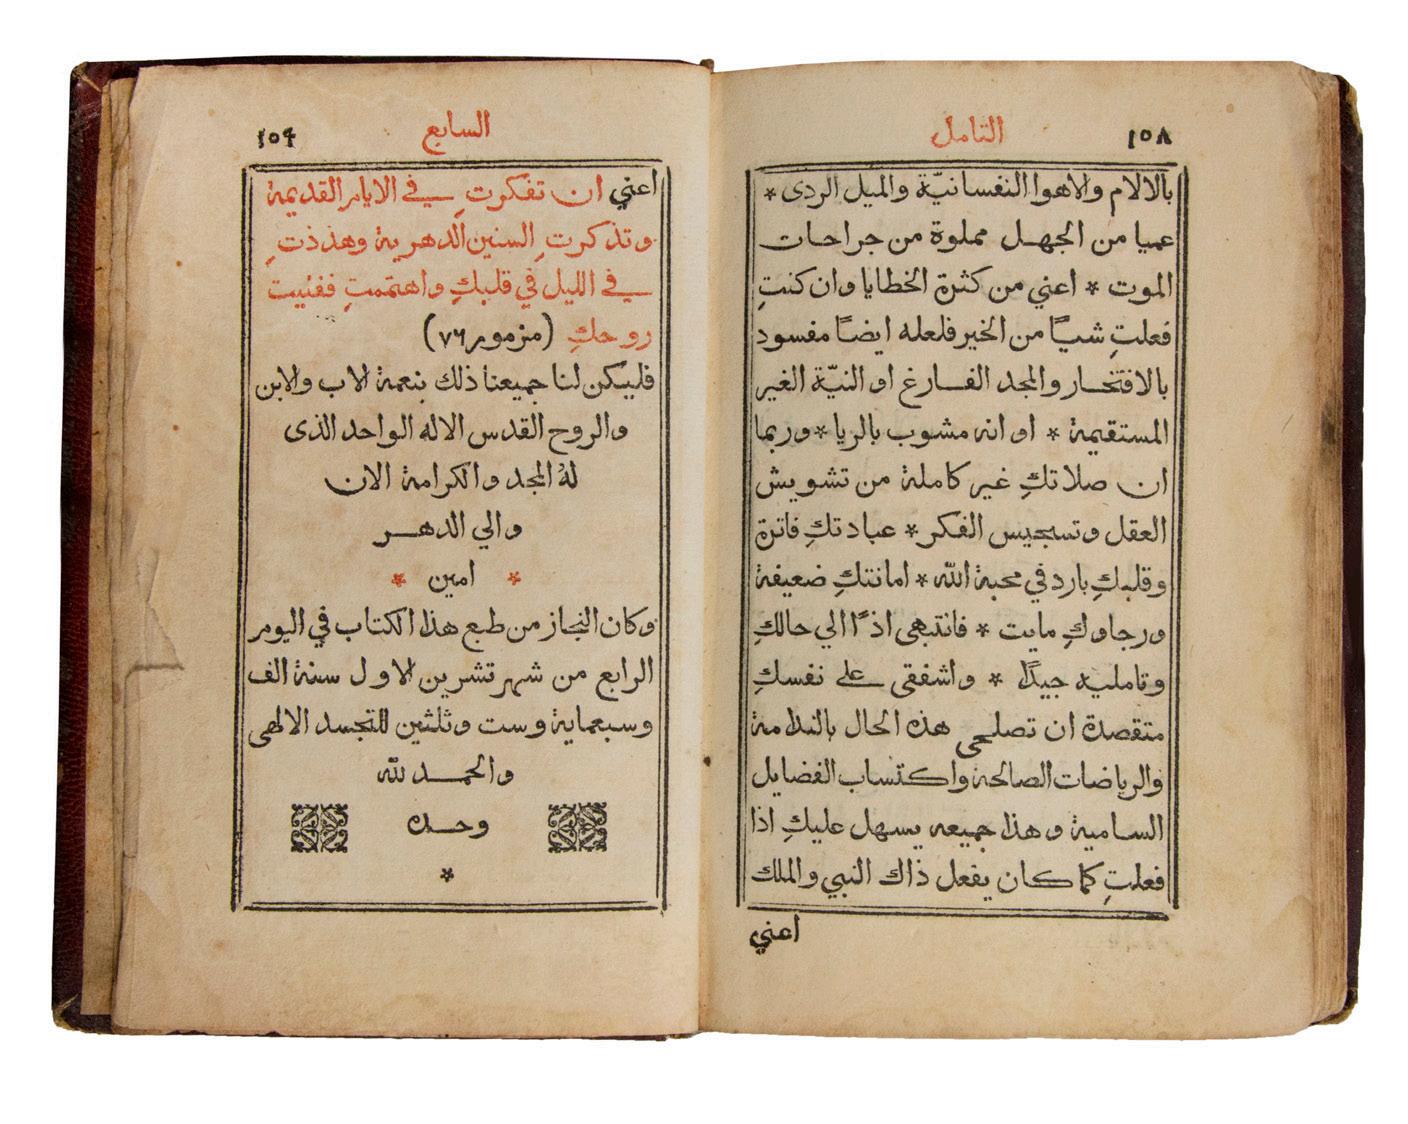 ١٥٨
التامل
بالالام والاهوا النفسانيّة والميل الردى *
عميا من الجهل مملوة من جراحات
الموت * اعني من كثرة الخطايا وان كنتِ
فعلتِ شيًا من الخير فلعله ايضًا مفسود
بالافتخار والمجد الفارغ او النيّة الغير
المستقيمة * او انه مشوب بالريا * وربما
ان صلاتكِ غير كاملة من تشويش
العقل وتسجيس الفكر * عبادتكِ فاترة
وقلبكِ بارد في محبة الله * امانتكِ ضعيفة
ورجاوكِ مايت * فانتبهى اذًا الي حالكِ
وتامليه جيدًا * واشفقى على نفسكِ
متقصدة ان تصلحى هذه الحال بالندامة
والرياضات الصالحة واكتساب الفضايل
السامية وهذا جميعه يسهل عليكِ اذا
فعلتِ كما كان يفعل ذاك النبي والملك
اعني
السابع
١٥٩
اعني ان تفكرتِ في الايام القديمة
وتذكرتِ السنين الدهرية وهذذتِ
في الليل في قلبكِ واهتممتِ ففنيت
روحكِ (مزمور ٧٦)
فليكن لنا جميعنا ذلك بنعمة الاب والابن
والروح القدس الاله الواحد الذى
لهُ المجد والكرامة الان
والي الدهر
* امين *
وكان النجاز من طبع هذا الكتاب في اليوم
الرابع من شهر تشرين الاول سنة الف
وسبعماية وست وثلثين للتجسد الالهى
والحمد لله
وحده
*